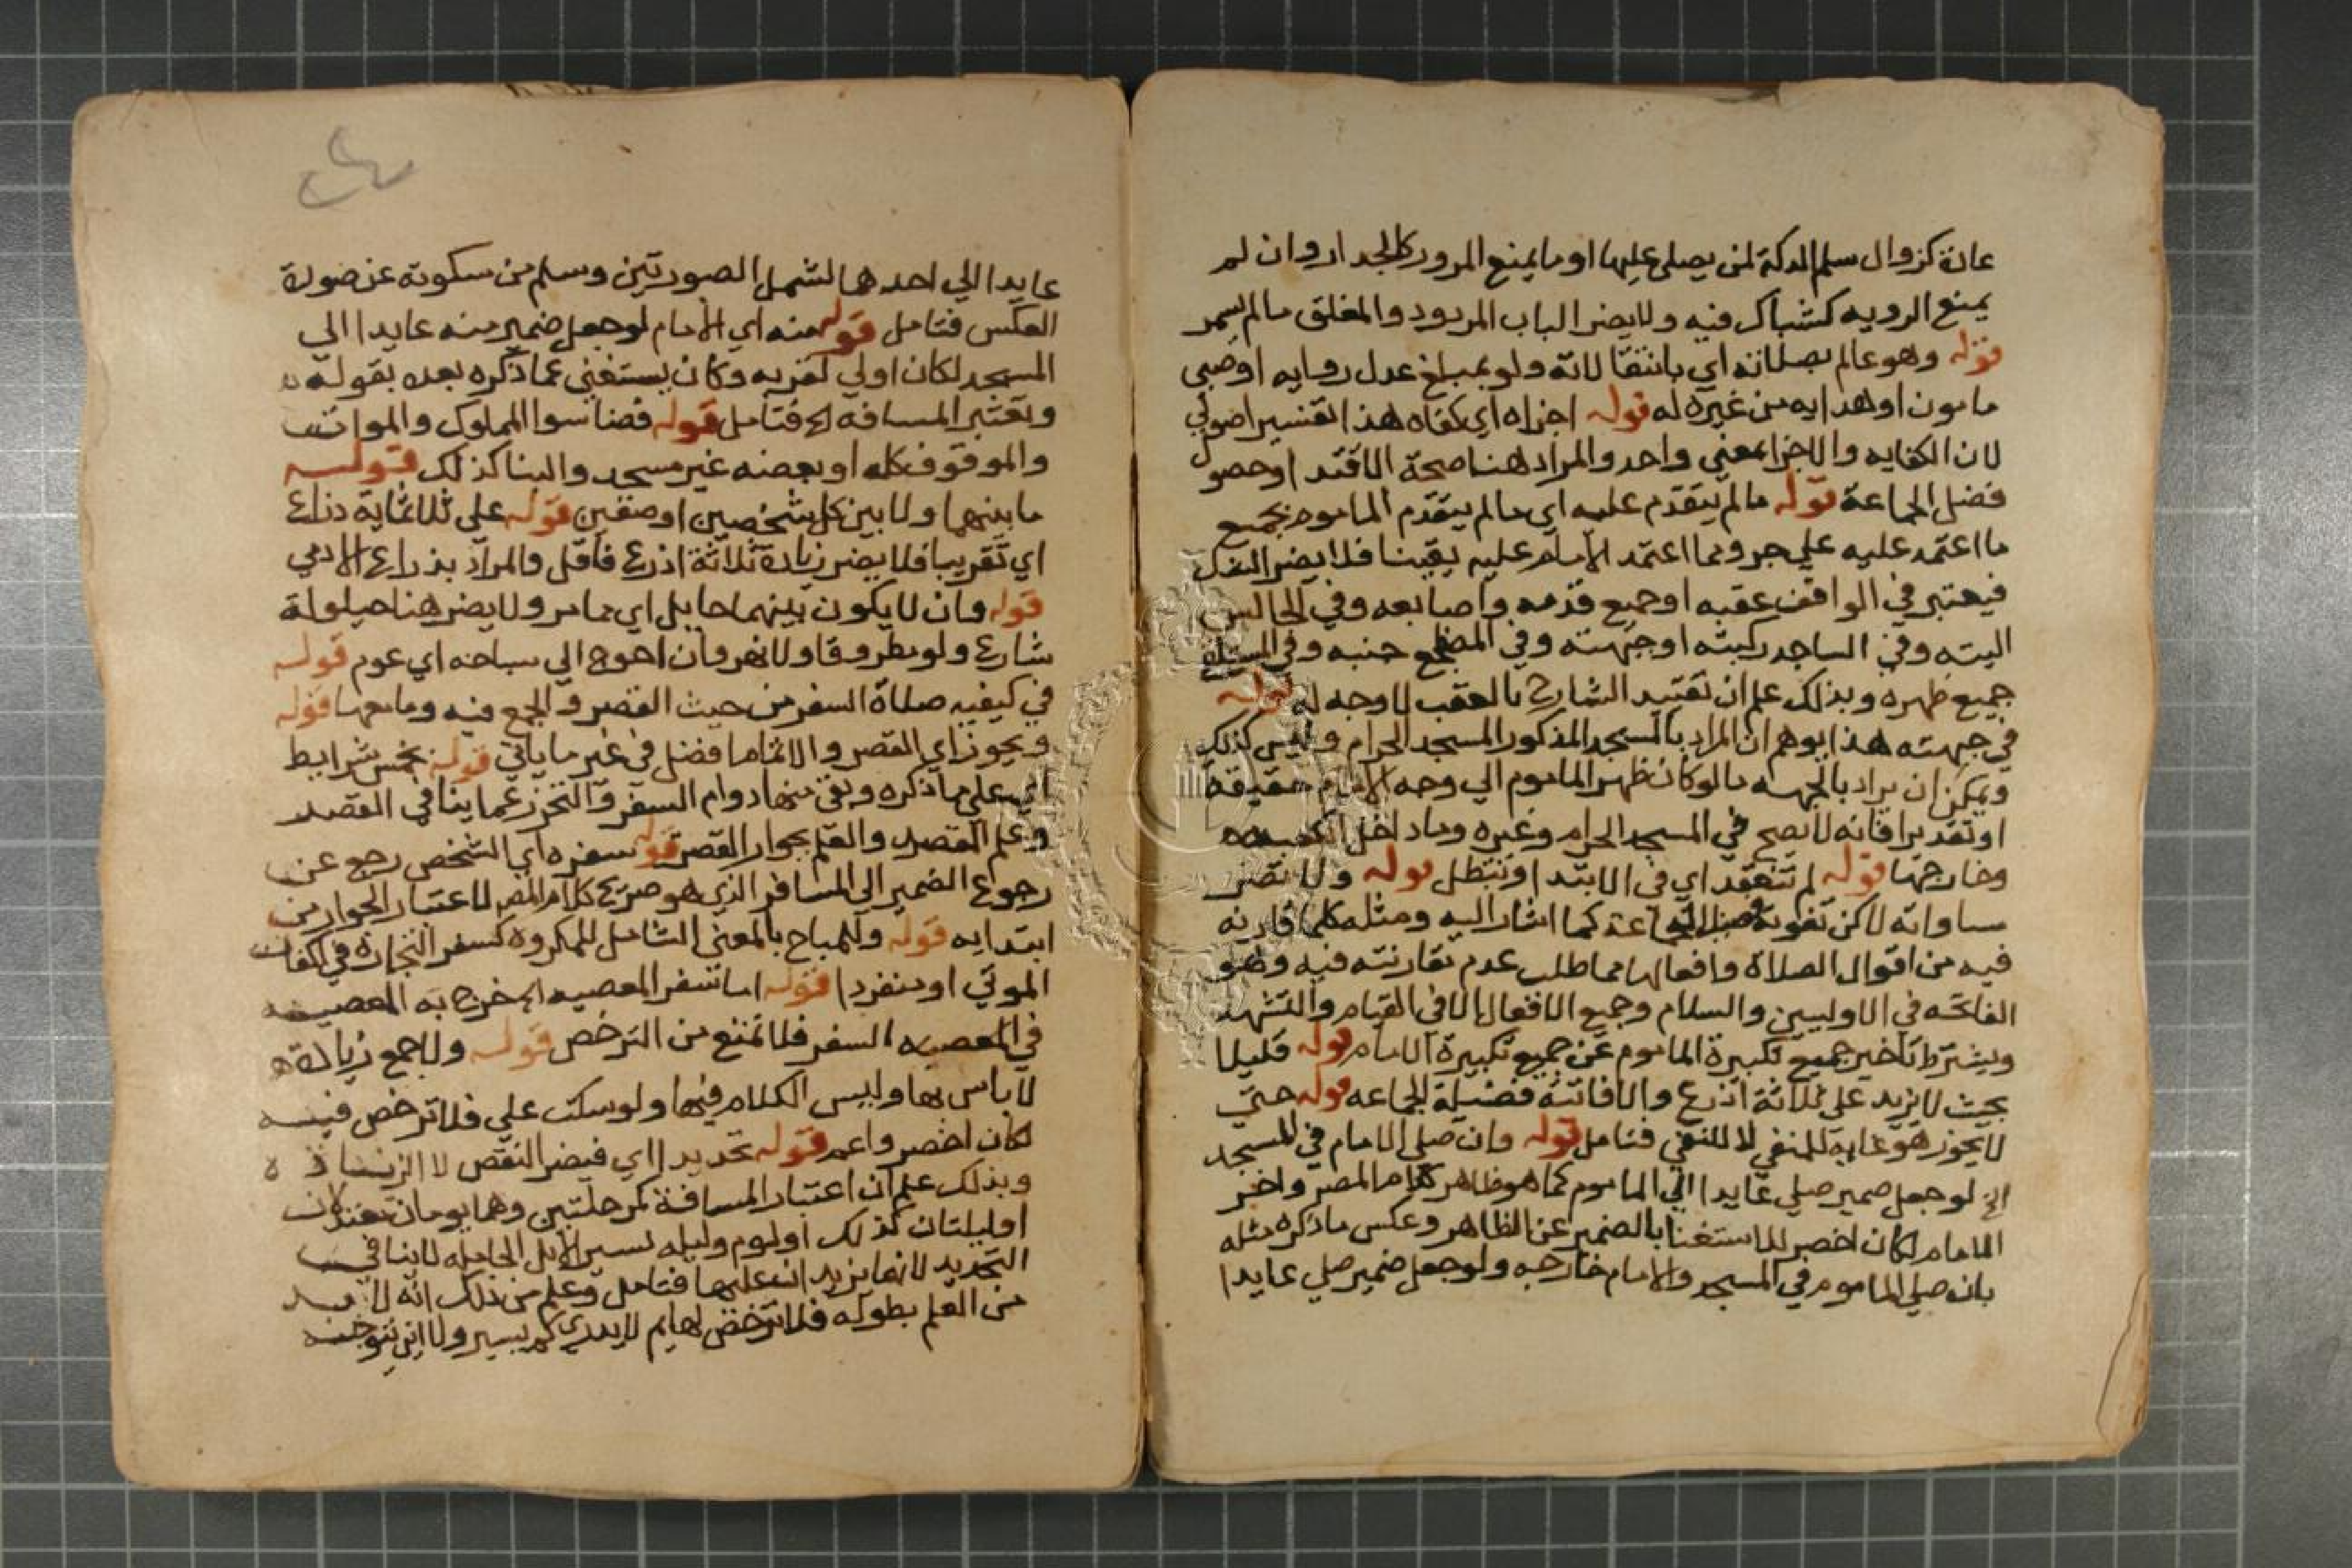 عادة كزوال سلم الدكة لمن يصلي عليها او ما يمنع المرور كالجدار وان لم
يمنع الرويه كشباك فيه ولا يضر الباب المردود والمغلق مالم يسمر
قوله وهو عالم بصلاته اي بانتقالاته ولو بمبلغ عدل روايه او صبي
مامون او هدايه من غيره له قوله اجزاه اي كفاه هذا تفسير اصولي
لان الكفايه والاجزا بمعني واحد والمراد هنا صحة الاقتدا وحصول
فضل الجماعة قوله مالم يتقدم عليه اي مالم يتقدم الماموم بجميع
ما اعتمد عليه علي جزو مما اعتمد الامام عليه يقينا فلا يضر الشك
فيعتبر في الواقف عقبه او جميع قدمه واصابعه وفي الجالس
اليته وفي الساجد ركبته او جبهته وفي المضطجع جنبه وفي المستلقي
جميع ظهره وبذلك علم ان تقييد الشارح بالعقب لا وجه له قوله
في جهته هذا يوهم ان المراد بالمسجد المذكور المسجد الحرام وليس كذلك
ويمكن ان يراد بالجهه مالو كان ظهر الماموم الي وجه الامام حقيقة
او تقديرا فانه لا يصح في المسجد الحرام وغيره وداخل الكعبه
وخارجها قوله لم تنعقد اي في الابتدا وتبطل قوله ولا تضر
مساواته لاكن تفوته فضل الجماعة كما اشار اليه ومثله كلما قارنه
فيه من اقوال الصلاة وافعالها مما طلب عدم مقارنته فيه وهو
الفاتحه في الاوليين والسلام وجميع الافعال الا في القيام والتشهد
ويشترط تاخير جميع تكبيرة الماموم عن جميع تكبيرة الامام قوله قليلا
بحيث لا يزيد علي ثلاثة اذرع والا فاتته فضيلة الجماعه قوله حتي
لا يحوز هو غاية للمنفي لا للنفي فتامل قوله وان صلي الامام في المسجد
الخ لو جعل ضمير صلي عايدا الي الماموم كما هو ظاهر كلام المصر واخر
الامام لكان اخصر للاستغنا بالضمير عن الظاهر وعكس ما ذكره مثله
بان صلي الماموم في المسجد والامام خارجه ولو جعل ضمير صلي عايدا
عايدا الي احدهما لشمل الصورتين وسلم من سكوته عن صورة
العكس فتامل قوله منه اي الامام لو جعل ضمير منه عايدا الي
المسجد لكان اولي لقربه وكان يستغني عما ذكره بعده بقوله
وتعتبر المسافه الخ فتامل قوله فضا سوا المملوك والموات
والموقوف كله او بعضه غير مسجد والبنا كذلك قوله
ما بينهما ولا بين كل شخصين او صفين قوله علي ثلاثماية ذراع
اي تقريبا فلا يضر زيادة ثلاثة اذرع فاقل والمراد بذراع الادمي
قوله وان لا يكون بينهما حايل اي مما مر ولا يضر هنا حيلولة
شارع ولو مطروقا ولا نهر وان احوج الي سباحه اي عوم قوله
في كيفيه صلاة السفر من حيث القصر والجمع فيه وما معها قوله
ويجوز اي القصر والاتمام افضل في غير ما ياتي قوله بخمس شرايط
اي علي ما ذكره وبقي منها دوام السفر والتحرز عما ينافي القصد
وعلم القصد والعلم بجواز القصر قوله سفره اي الشخص رجع عن
رجوع الضمير الي المسافر الذي هو صريح كلام المصر لاعتبار الجواز من
ابتدايه قوله والمباح بالمعني الشامل للمكروه كسفر التجارة في اكفان
الموتي او منفردا قوله اما سفر المعصيه خرج به المعصيه
في المعصيه السفر فلا تمنع من الترخص قوله ولا جمع زيادة
لا باس بها وليس الكلام فيها ولو سكت علي فلا ترخص فيه
لكان اخصر واعم قوله تحديدا اي فيضر النقص لا الزيادة
وبذلك علم ان اعتبار المسافة بمرحلتين وهما يومان معتدلان
او ليلتان كذلك او يوم وليله بسير الابل الحامله لا ينافي
التحديد لانها يزيدان عليها فتامل وعلم من ذلك انه لا بد
من العلم بطوله فلا ترخص لهايم لا يدري كم يسير ولا اين يتوجه